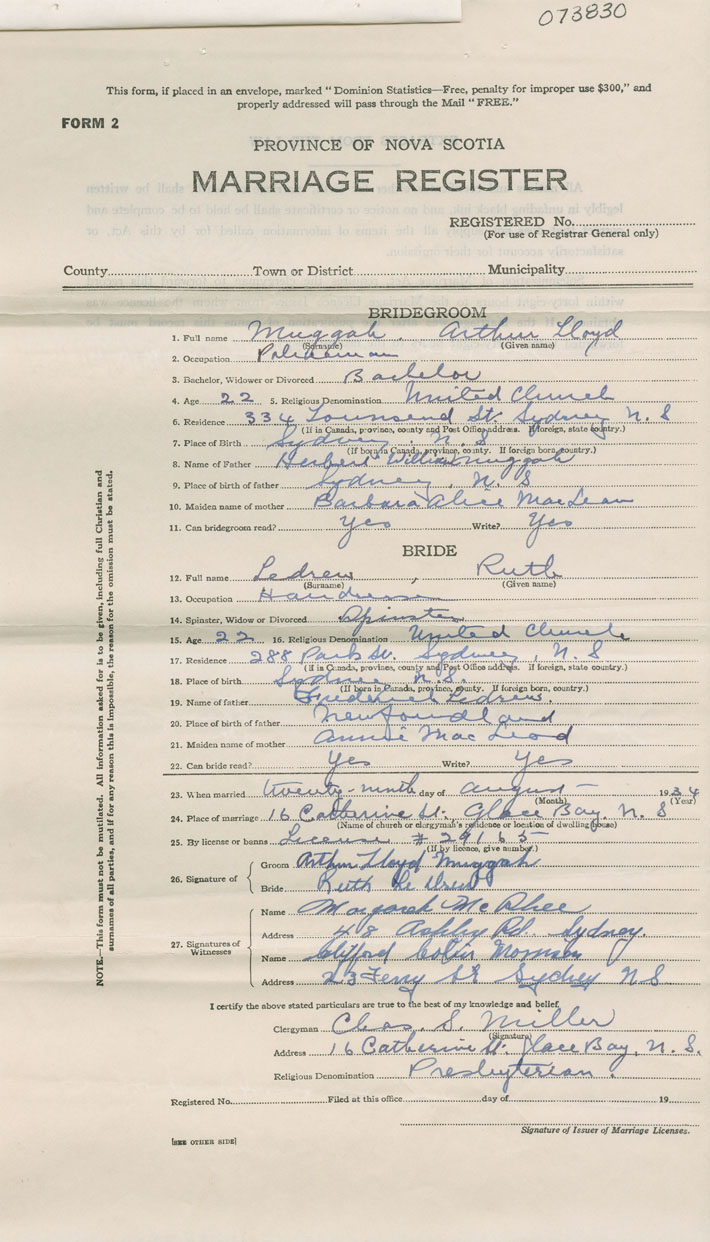 073830
This form, if placed in an envelope, marked "Dominion Statistics—Free, penalty for improper use $300," and
properly addressed will pass through the Mail "FREE."
FORM 2
PROVINCE OF NOVA SCOTIA
MARRIAGE REGISTER
REGISTERED No.
(For use of Registrar General only)
County Town or District Municipality
BRIDEGROOM
1. Full name Muggah, Arthur Lloyd
(Surname) (Given name)
2. Occupation Policeman
3. Bachelor, Widower or Divorced Bachelor
4. Age 22 5. Religious Denomination United Church
6. Residence 334 Townsend St. Sydney N. S
(If in Canada, province, county and Post Office address. If foreign, state country.)
7. Place of Birth Sydney, N. S
(If born in Canada, province, county. If foreign born, country.)
8. Name of Father Herbert William Muggah
9. Place of birth of father Sydney, N. S
10. Maiden name of mother Barbara Alice MacLean
11. Can bridegroom read? Yes Write? Yes
BRIDE
12. Full name Ledrew, Ruth
(Surname) (Given name)
13. Occupation
14. Spinster, Widow or Divorced Spinster
15. Age 22 16. Religious Denomination United Church
17. Residence 288 Park St. Sydney, N. S
(If in Canada, province, county and Post Office address. If foreign, state country.)
18. Place of birth Sydney N.S.
(If born in Canada, province, county. If foreign born, country.)
19. Name of father Frederick Ledrew.
20. Place of birth of father Newfoundland
21. Maiden name of mother Annie Mac Leod
22. Can bride read? Yes Write? Yes
23. When married twenty-ninth day of August 1934
(Month) (Year)
24. Place of marriage 16 Catherine St. Glace Bay, N. S
(Name of church or clergyman's residence or location of dwelling house)
25. By license or banns License # 29165
(If by licence, give number.)
26. Signature of
Groom Arthur Lloyd Muggah
Bride Ruth Le Drew
27. Signatures of Witnesses
Name Margaret McPhee
Address 48 Ashby Rd. Sydney.
Name Clifford Colin Morrison
Address 23 Ferry St Sydney N S
I certify the above stated particulars are true to the best of my knowledge and belief,
Clergyman Chas. S. Miller
(Signature)
Address 16 Catherine St. Glace Bay, N. S.
Religious Denomination Presbyterian.
Registered No. Filed at this office day of 19
Signature of Issuer of Marriage Licenses.
[SEE OTHER SIDE]
NOTE.—This form must not be mutilated. All information asked for is to be given, including full Christian and
surnames of all parties, and if for any reason this is impossible, the reason for the omission must be stated.